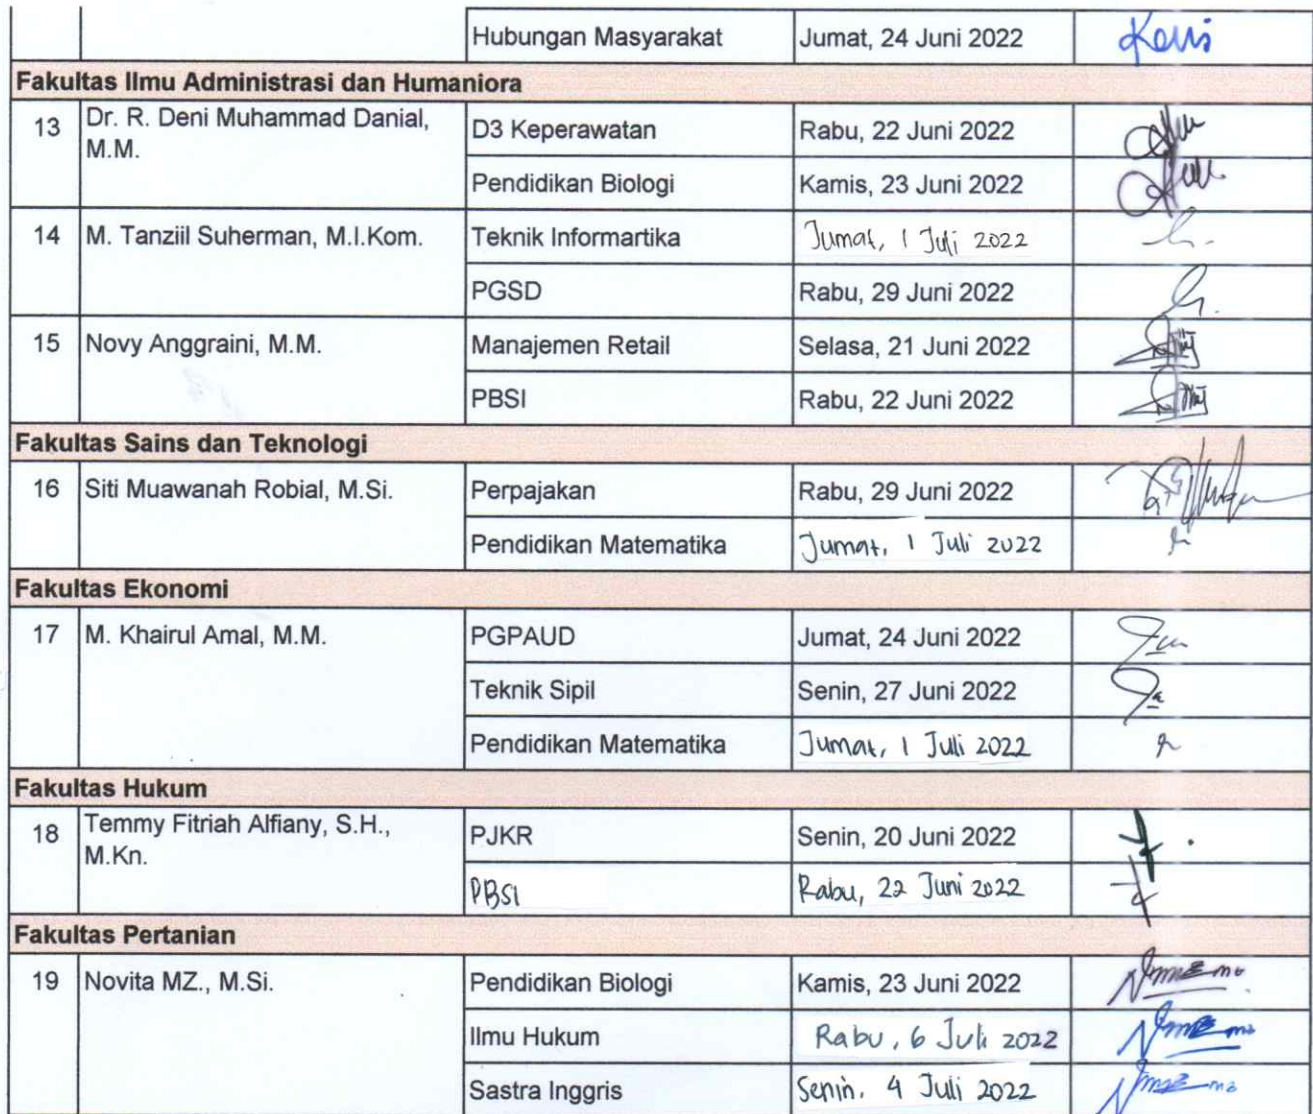 Hubungan Masyarakat Jumat, 24 Juni 2022
Fakultas Ilmu Administrasi dan Humaniora
13 Dr. R. Deni Muhammad Danial, M.M. D3 Keperawatan Rabu, 22 Juni 2022
Pendidikan Biologi Kamis, 23 Juni 2022
14 M. Tanziil Suherman, M.I.Kom. Teknik Informartika Jumat, 1 Juli 2022
PGSD Rabu, 29 Juni 2022
15 Novy Anggraini, M.M. Manajemen Retail Selasa, 21 Juni 2022
PBSI Rabu, 22 Juni 2022
Fakultas Sains dan Teknologi
16 Siti Muawanah Robial, M.Si. Perpajakan Rabu, 29 Juni 2022
Pendidikan Matematika Jumat, 1 Juli 2022
Fakultas Ekonomi
17 M. Khairul Amal, M.M. PGPAUD Jumat, 24 Juni 2022
Teknik Sipil Senin, 27 Juni 2022
Pendidikan Matematika Jumat, 1 Juli 2022
Fakultas Hukum
18 Temmy Fitriah Alfiany, S.H., M.Kn. PJKR Senin, 20 Juni 2022
PBSI Rabu, 22 Juni 2022
Fakultas Pertanian
19 Novita MZ., M.Si. Pendidikan Biologi Kamis, 23 Juni 2022
Ilmu Hukum Rabu, 6 Juli 2022
Sastra Inggris Senin, 4 Juli 2022